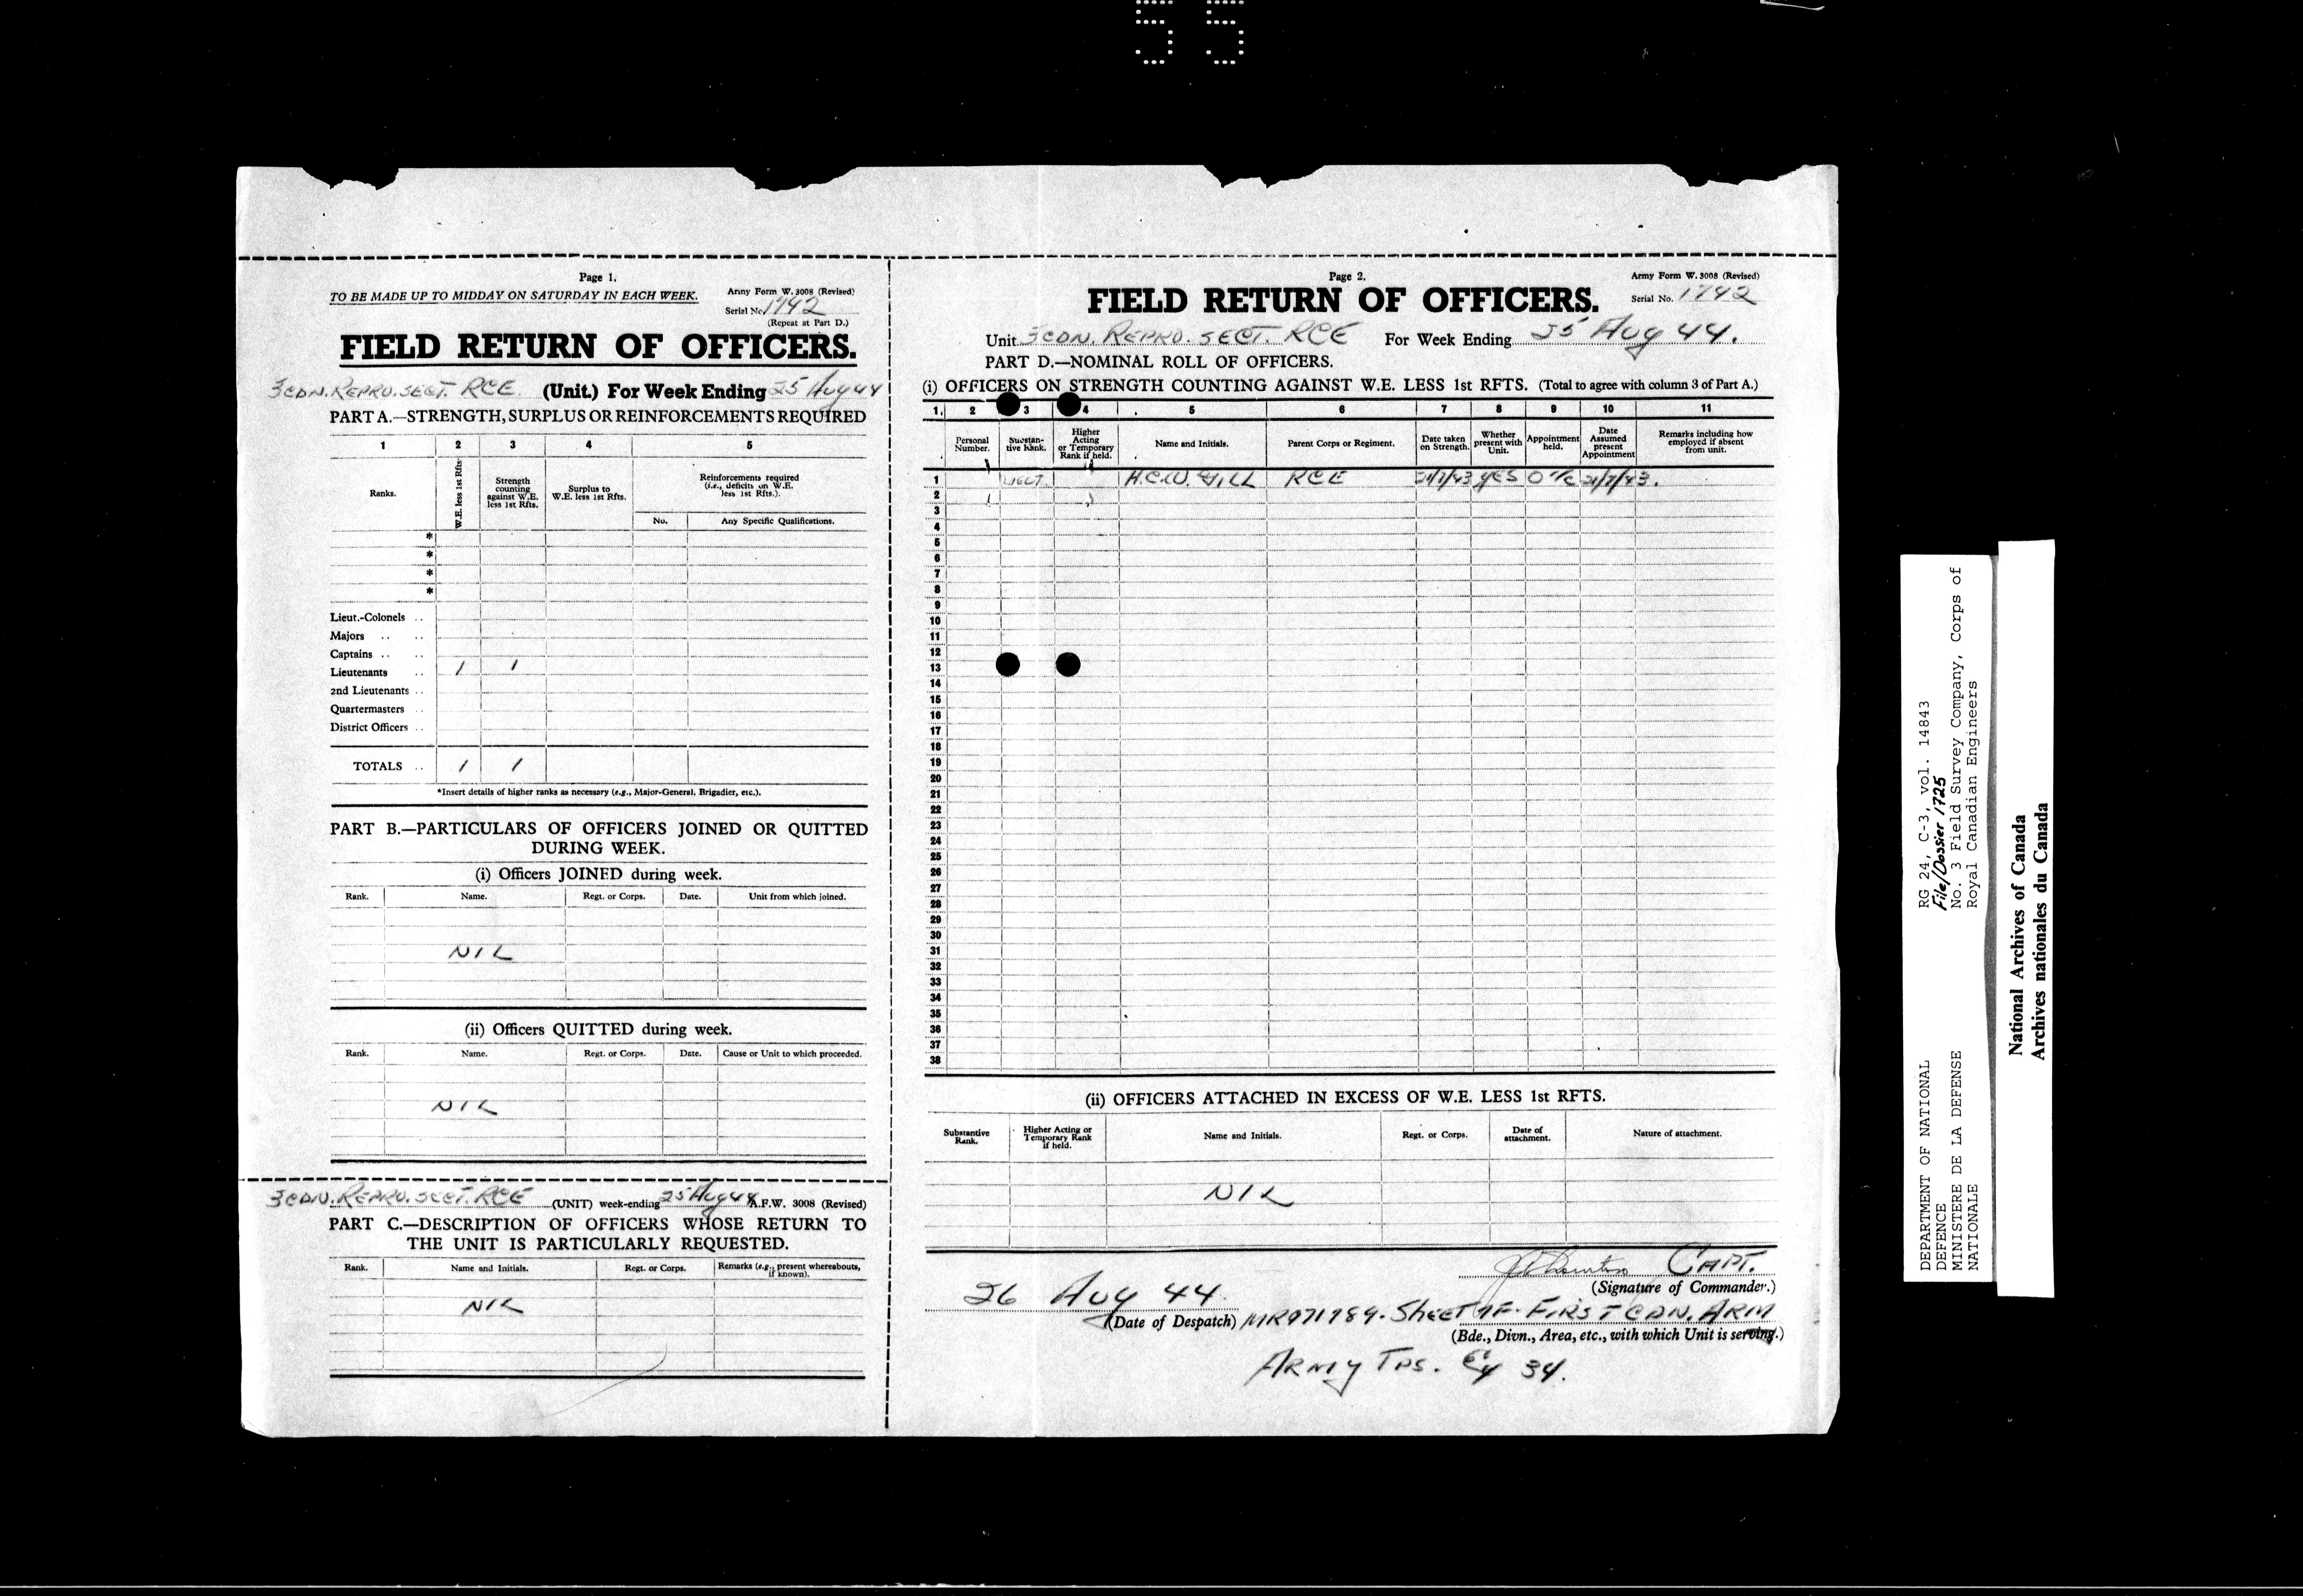 55
Page 1.
TO BE MADE UP TO MIDDAY ON SATURDAY IN EACH WEEK.
Army Form W. 3008 (Revised)
Serial No. 1742
(Repeat at Part D.)
FIELD RETURN OF OFFICERS.
3 CDN. REPRO. SECT. RCE (Unit.) For Week Ending 25 Aug 44
PART A.—STRENGTH, SURPLUS OR REINFORCEMENTS REQUIRED
1 2 3 4 5
Ranks.
W.E. less 1st Rfts.
Strength counting against W.E. less 1st Rfts.
Surplus to W.E. less 1st Rfts.
Reinforcements required (i.e., deficits on W.E. less 1st Rfts.).
No. Any Specific Qualifications.
*
*
*
*
Lieut.-Colonels ..
Majors .. ..
Captains .. ..
Lieutenants .. 1 1
2nd Lieutenants ..
Quartermasters ..
District Officers ..
TOTALS .. 1 1
*Insert details of higher ranks as necessary (e.g., Major-General, Brigadier, etc.).
PART B.—PARTICULARS OF OFFICERS JOINED OR QUITTED
DURING WEEK.
(i) Officers JOINED during week.
Rank. Name. Regt. or Corps. Date. Unit from which joined.
NIL
(ii) Officers QUITTED during week.
Rank. Name. Regt. or Corps. Date. Cause or Unit to which proceeded.
NIL
3 CDN. REPRO. SECT. RCE (UNIT) week-ending 25 Aug 44 A.F.W. 3008 (Revised)
PART C.—DESCRIPTION OF OFFICERS WHOSE RETURN TO
THE UNIT IS PARTICULARLY REQUESTED.
Rank. Name and Initials. Regt. or Corps. Remarks (e.g., present whereabouts, if known).
NIL
Page 2.
Army Form W. 3008 (Revised)
FIELD RETURN OF OFFICERS.
Serial No. 1742
Unit 3 CDN. REPRO. SECT. RCE For Week Ending 25 Aug 44.
PART D.—NOMINAL ROLL OF OFFICERS.
(i) OFFICERS ON STRENGTH COUNTING AGAINST W.E. LESS 1st RFTS. (Total to agree with column 3 of Part A.)
1. 2 3 4 5 6 7 8 9 10 11
Personal Number.
Substan-tive Rank.
Higher Acting or Temporary Rank if held.
Name and Initials.
Parent Corps or Regiment.
Date taken on Strength.
Whether present with Unit.
Appointment held.
Date Assumed present Appointment
Remarks including how employed if absent from unit.
1 LIEUT H.C.W. GILL RCE 21/7/43 YES O i/c 21/7/43.
2
3
4
5
6
7
8
9
10
11
12
13
14
15
16
17
18
19
20
21
22
23
24
25
26
27
28
29
30
31
32
33
34
35
36
37
38
(ii) OFFICERS ATTACHED IN EXCESS OF W.E. LESS 1st RFTS.
Substantive Rank.
Higher Acting or Temporary Rank if held.
Name and Initials.
Regt. or Corps.
Date of attachment.
Nature of attachment.
NIL
CAPT.
(Signature of Commander.)
26 Aug 44.
(Date of Despatch) MR 971789. Sheet 7F. FIRST CDN. ARM
(Bde., Divn., Area, etc., with which Unit is serving.)
ARMY TPS. 34.
DEPARTMENT OF NATIONAL
DEFENCE
MINISTERE DE LA DEFENSE
NATIONALE
RG 24, C-3, vol. 14843
File/Dossier 1725
No. 3 Field Survey Company, Corps of
Royal Canadian Engineers
National Archives of Canada
Archives nationales du Canada